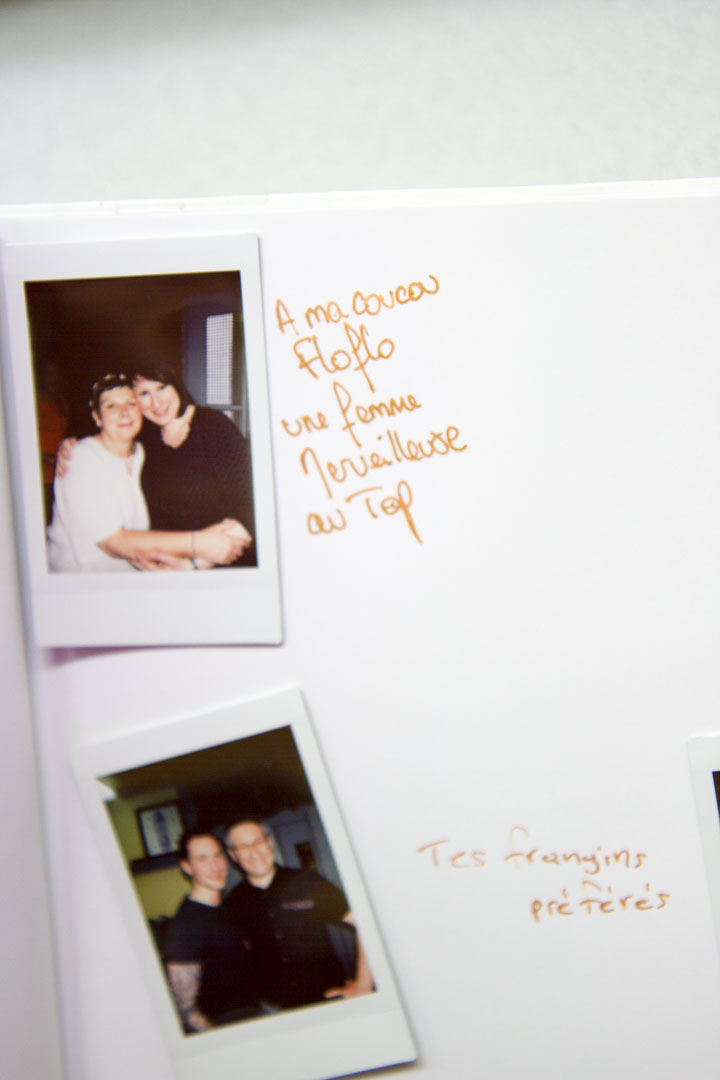 A ma coucou
Floflo
une femme
Merveilleuse
au Top
Tes frangins
préférés